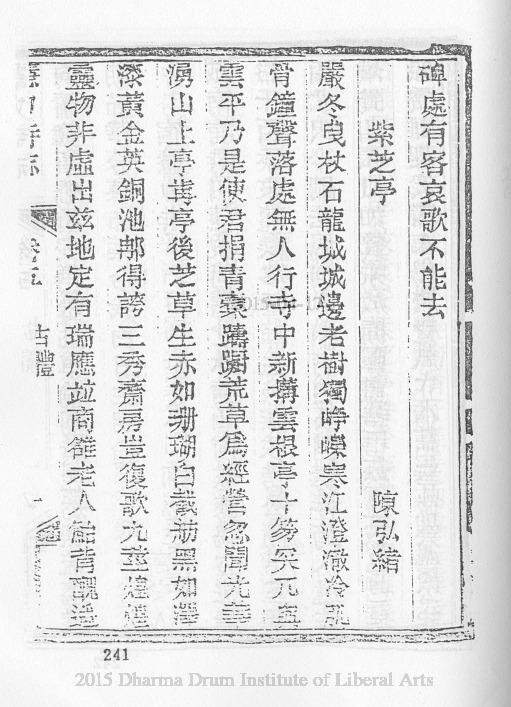 碑處有客哀歌不能去
紫芝亭 陳弘緒
嚴冬曳杖石龍城城邊老樹獨崢嶸寒江澄澈冷
骨鐘聲落處無人行寺中新搆雲根亭十笏
雲平乃是使君捐青囊躊躕荒草爲經營忽聞光華
湧山上亭背亭後芝草生赤如珊瑚白截肪黑如
漆黃金英銅池那得誇三秀齋房豈復歌九莖煌煌
靈物非虛出茲地定有瑞應竝商雒老人鮐背
卷 古體
241
2015 Dharma Drum Institute of Liberal Arts